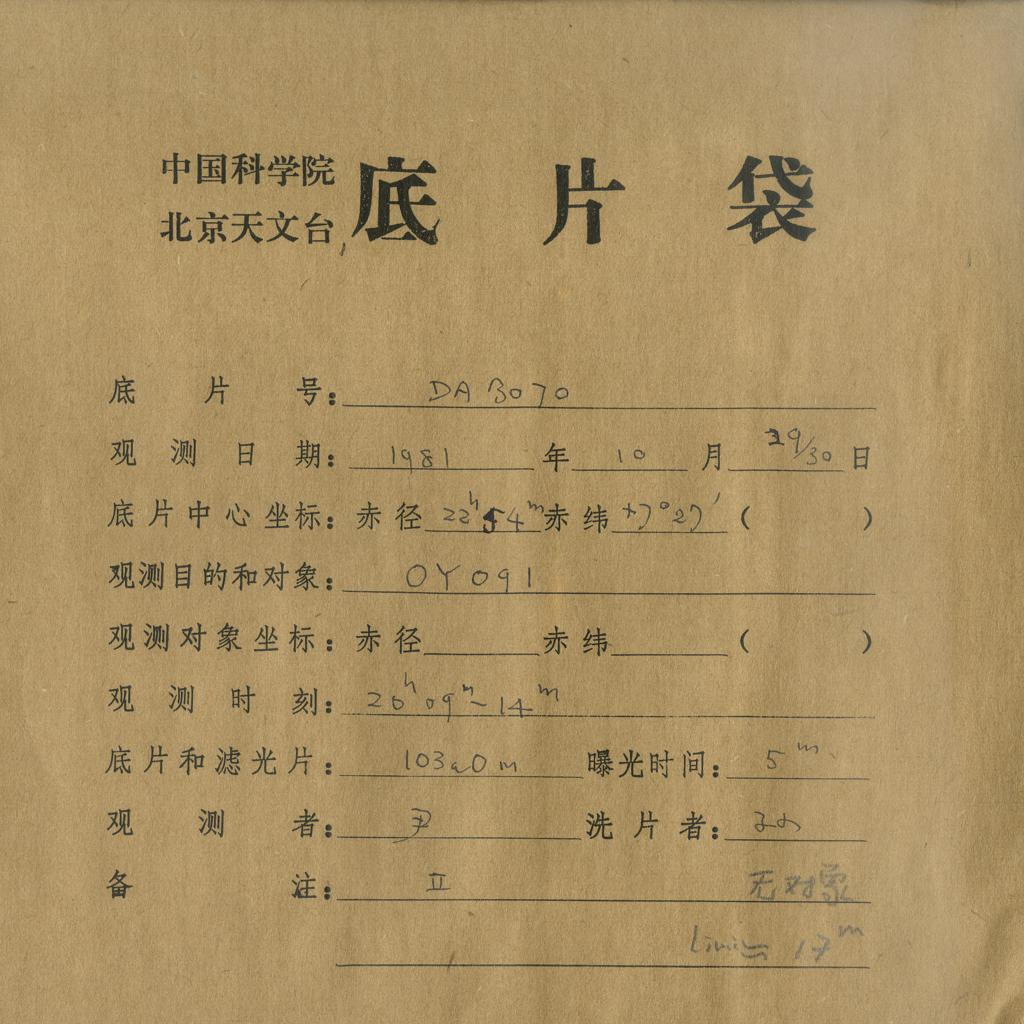 中国科学院
北京天文台
底片袋
底片号： DA 3070
观测日期： 1981 年 10 月 29/30 日
底片中心坐标：赤径 22h 54m 赤纬 +7°27′ （ ）
观测目的和对象： OY 091
观测对象坐标：赤径 赤纬 （ ）
观测时刻： 20h 09m - 14m
底片和滤光片： 103aO m 曝光时间： 5m
观测者： 尹 洗片者：
备注： II 无对象
17m